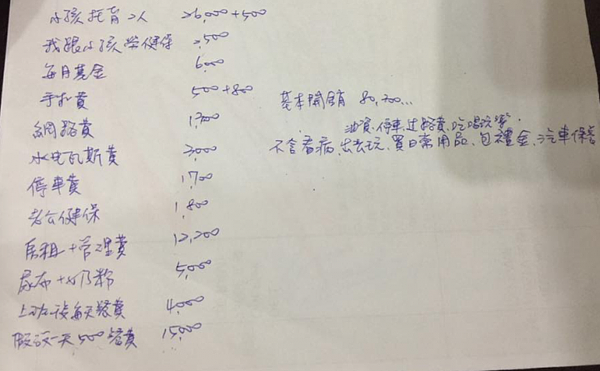 小孩托育2人 26,000+500
我跟小孩勞健保 2,500
每月基金 6,000
手機費 500+800
基本開銷 80,200...
網路費 1,700
油資、停車、過路費、吃喝玩樂
不含看病、出去玩、買日常用品、包禮金、汽車保養
水電瓦斯費 3,000
停車費 1,700
老公健保 1,800
房租+管理費 12,200
尿布+奶粉 5,000
上班後每天餐費 4,000
假設一天500餐費 15,000